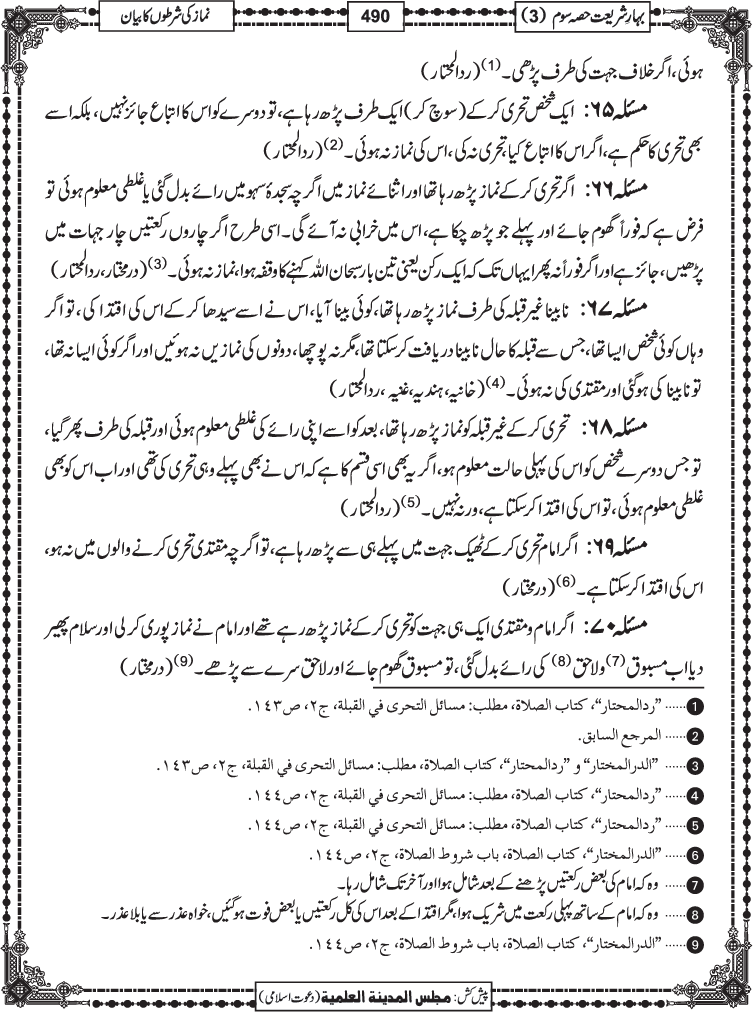 بہارِ شریعت حصہ سوم (3)
490
نماز کی شرطوں کا بیان
ہوئی، اگر خلاف جہت کی طرف پڑھی۔(1) (ردالمحتار)
مسئلہ ۶۵: ایک شخص تحری کر کے (سوچ کر) ایک طرف پڑھ رہا ہے، تو دوسرے کو اس کا اتباع جائز نہیں، بلکہ اسے
بھی تحری کا حکم ہے، اگر اس کا اتباع کیا، تحری نہ کی، اس کی نماز نہ ہوئی۔(2) (ردالمحتار)
مسئلہ ۶۶: اگر تحری کر کے نماز پڑھ رہا تھا اور اثنائے نماز میں اگرچہ سجدۂ سہو میں رائے بدل گئی یا غلطی معلوم ہوئی تو
فرض ہے کہ فوراً گھوم جائے اور پہلے جو پڑھ چکا ہے، اس میں خرابی نہ آئے گی۔ اسی طرح اگر چاروں رکعتیں چار جہات میں
پڑھیں، جائز ہے اور اگر فوراً نہ پھرا یہاں تک کہ ایک رکن یعنی تین بار سبحان اللہ کہنے کا وقفہ ہوا، نماز نہ ہوئی۔(3) (درمختار، ردالمحتار)
مسئلہ ۶۷: نابینا غیر قبلہ کی طرف نماز پڑھ رہا تھا، کوئی بینا آیا، اس نے اسے سیدھا کر کے اس کی اقتدا کی، تو اگر
وہاں کوئی شخص ایسا تھا، جس سے قبلہ کا حال نابینا دریافت کر سکتا تھا، مگر نہ پوچھا، دونوں کی نمازیں نہ ہوئیں اور اگر کوئی ایسا نہ تھا،
تو نابینا کی ہوگئی اور مقتدی کی نہ ہوئی۔(4) (خانیہ، ہندیہ، غنیہ، ردالمحتار)
مسئلہ ۶۸: تحری کر کے غیر قبلہ کو نماز پڑھ رہا تھا، بعد کو اسے اپنی رائے کی غلطی معلوم ہوئی اور قبلہ کی طرف پھر گیا،
تو جس دوسرے شخص کو اس کی پہلی حالت معلوم ہو، اگر یہ بھی اسی قسم کا ہے کہ اس نے بھی پہلے وہی تحری کی تھی اور اب اس کو بھی
غلطی معلوم ہوئی، تو اس کی اقتدا کر سکتا ہے، ورنہ نہیں۔(5) (ردالمحتار)
مسئلہ ۶۹: اگر امام تحری کر کے ٹھیک جہت میں پہلے ہی سے پڑھ رہا ہے، تو اگرچہ مقتدی تحری کرنے والوں میں نہ ہو،
اس کی اقتدا کر سکتا ہے۔(6) (درمختار)
مسئلہ ۷۰: اگر امام و مقتدی ایک ہی جہت کو تحری کر کے نماز پڑھ رہے تھے اور امام نے نماز پوری کر لی اور سلام پھیر
دیا اب مسبوق(7) ولاحق(8) کی رائے بدل گئی، تو مسبوق گھوم جائے اور لاحق سرے سے پڑھے۔(9) (درمختار)
1 ...... "ردالمحتار"، کتاب الصلاة، مطلب: مسائل التحری فی القبلة، ج۲، ص۱۴۳.
2 ...... المرجع السابق.
3 ...... "الدرالمختار" و "ردالمحتار"، کتاب الصلاة، مطلب: مسائل التحری فی القبلة، ج۲، ص۱۴۳.
4 ...... "ردالمحتار"، کتاب الصلاة، مطلب: مسائل التحری فی القبلة، ج۲، ص۱۴۴.
5 ...... "ردالمحتار"، کتاب الصلاة، مطلب: مسائل التحری فی القبلة، ج۲، ص۱۴۴.
6 ...... "الدرالمختار"، کتاب الصلاة، باب شروط الصلاة، ج۲، ص۱۴۴.
7 ...... وہ کہ امام کی بعض رکعتیں پڑھنے کے بعد شامل ہوا اور آخر تک شامل رہا۔
8 ...... وہ کہ امام کے ساتھ پہلی رکعت میں شریک ہوا، مگر اقتدا کے بعد اس کی کل رکعتیں یا بعض فوت ہوگئیں، خواہ عذر سے یا بلا عذر۔
9 ...... "الدرالمختار"، کتاب الصلاة، باب شروط الصلاة، ج۲، ص۱۴۴.
پیش کش: مجلس المدينة العلمية (دعوت اسلامی)